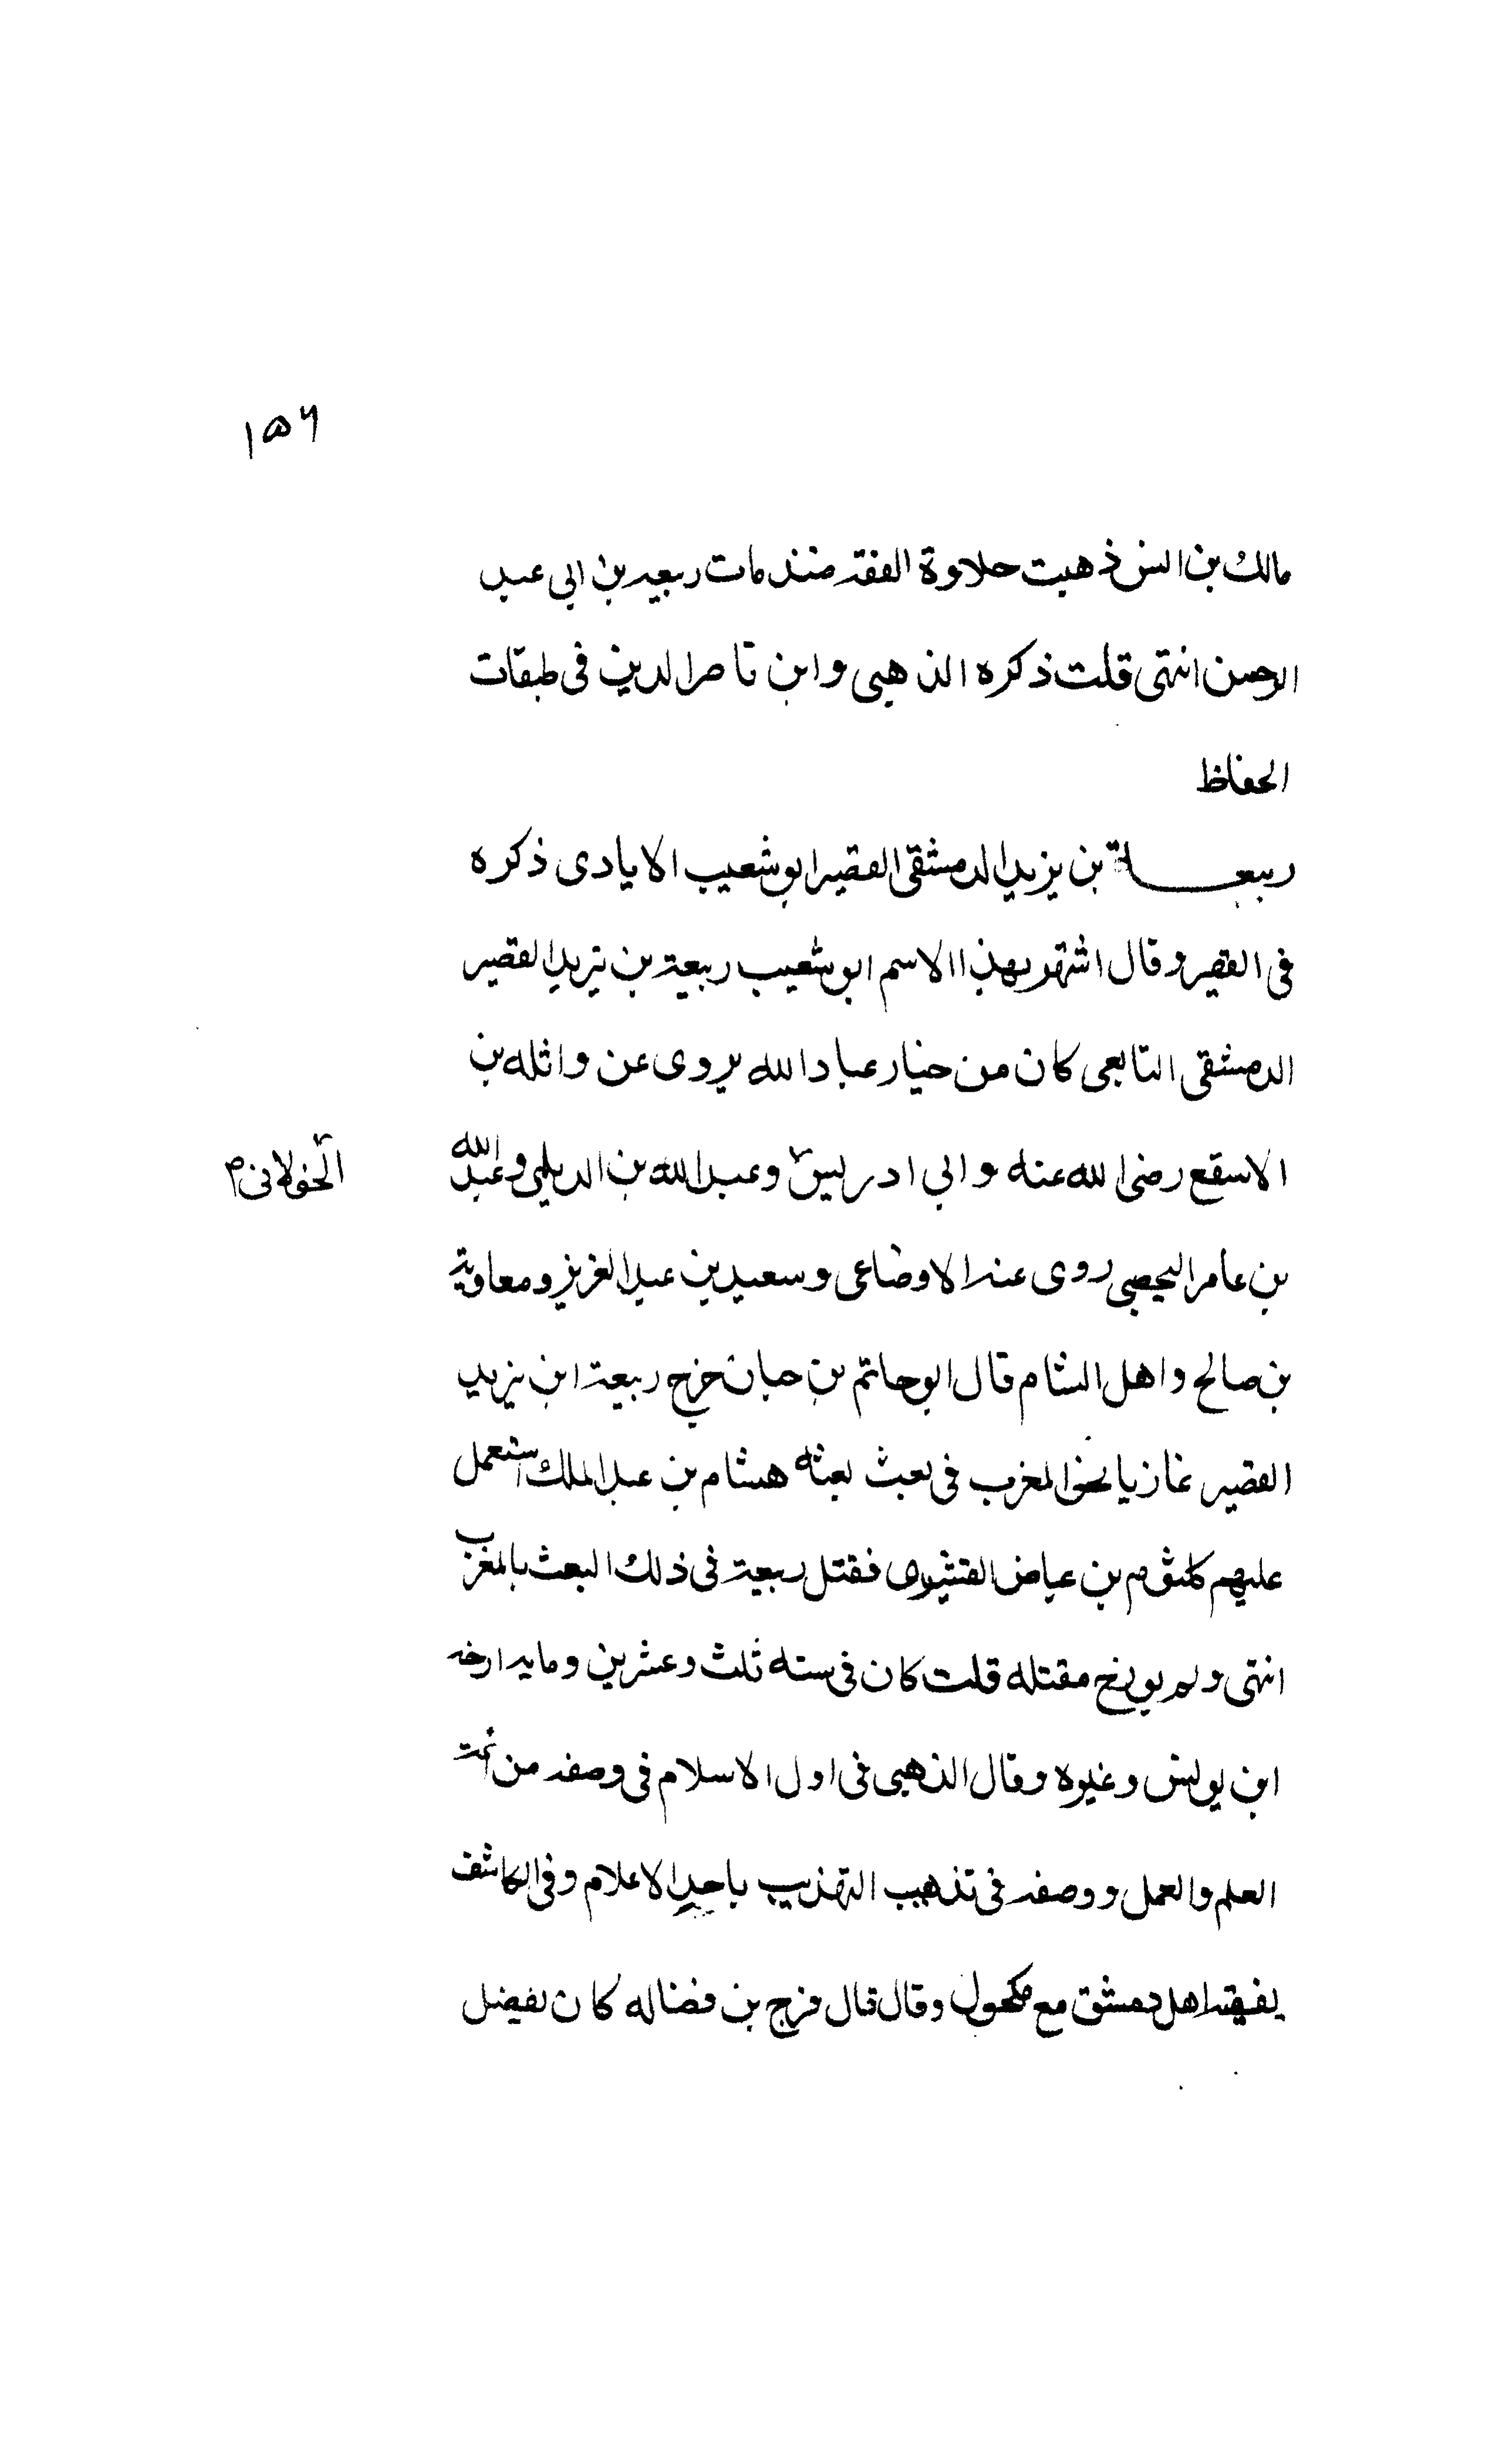 ١٥٦
مالك بن انس ذهبت حلاوة الفقه منذ مات ربيعه بن ابى عبد
الرحمن انتهى قلت ذكره الذهبى وابن ناصر الدين فى طبقات
الحفاظ
ربيعة بن يزيد الدمشقى القصير ابو شعيب الايادى ذكره
فى القصير وقال اشتهر بهذا الاسم ابو شعيب ربيعة بن يزيد القصير
الدمشقى التابعى كان من خيار عباد الله يروى عن واثله بن
الاسقع رضى الله عنه وابي ادريس وعبد الله بن الديلمي وعبد الله
الخولانى م
بن عامر اليحصبى روى عنه الاوضاعى وسعيد بن عبد العزيز ومعاوية
بن صالح واهل الشام قال ابو حاتم بن حبان خرج ربيعة ابن يزيد
القصير غازيا نحو المغرب فى بعث بعثه هشام بن عبد الملك استعمل
عليهم كلثوم بن عياض القشيرى فقتل ربيعة فى ذلك البعث بالمغرب
انتهى ولم يورخ مقتله قلت كان فى سنه ثلث وعشرين ومايه ارخه
ابن يونس وغيره وقال الذهبى فى اول الاسلام فى وصفه من أئمة
العلم والعمل ووصفه فى تذهيب التهذيب باحد الاعلام وفى الكاشف
بفقيه اهل دمشق مع مكحول وقال قال فرج بن فضاله كان يفضل